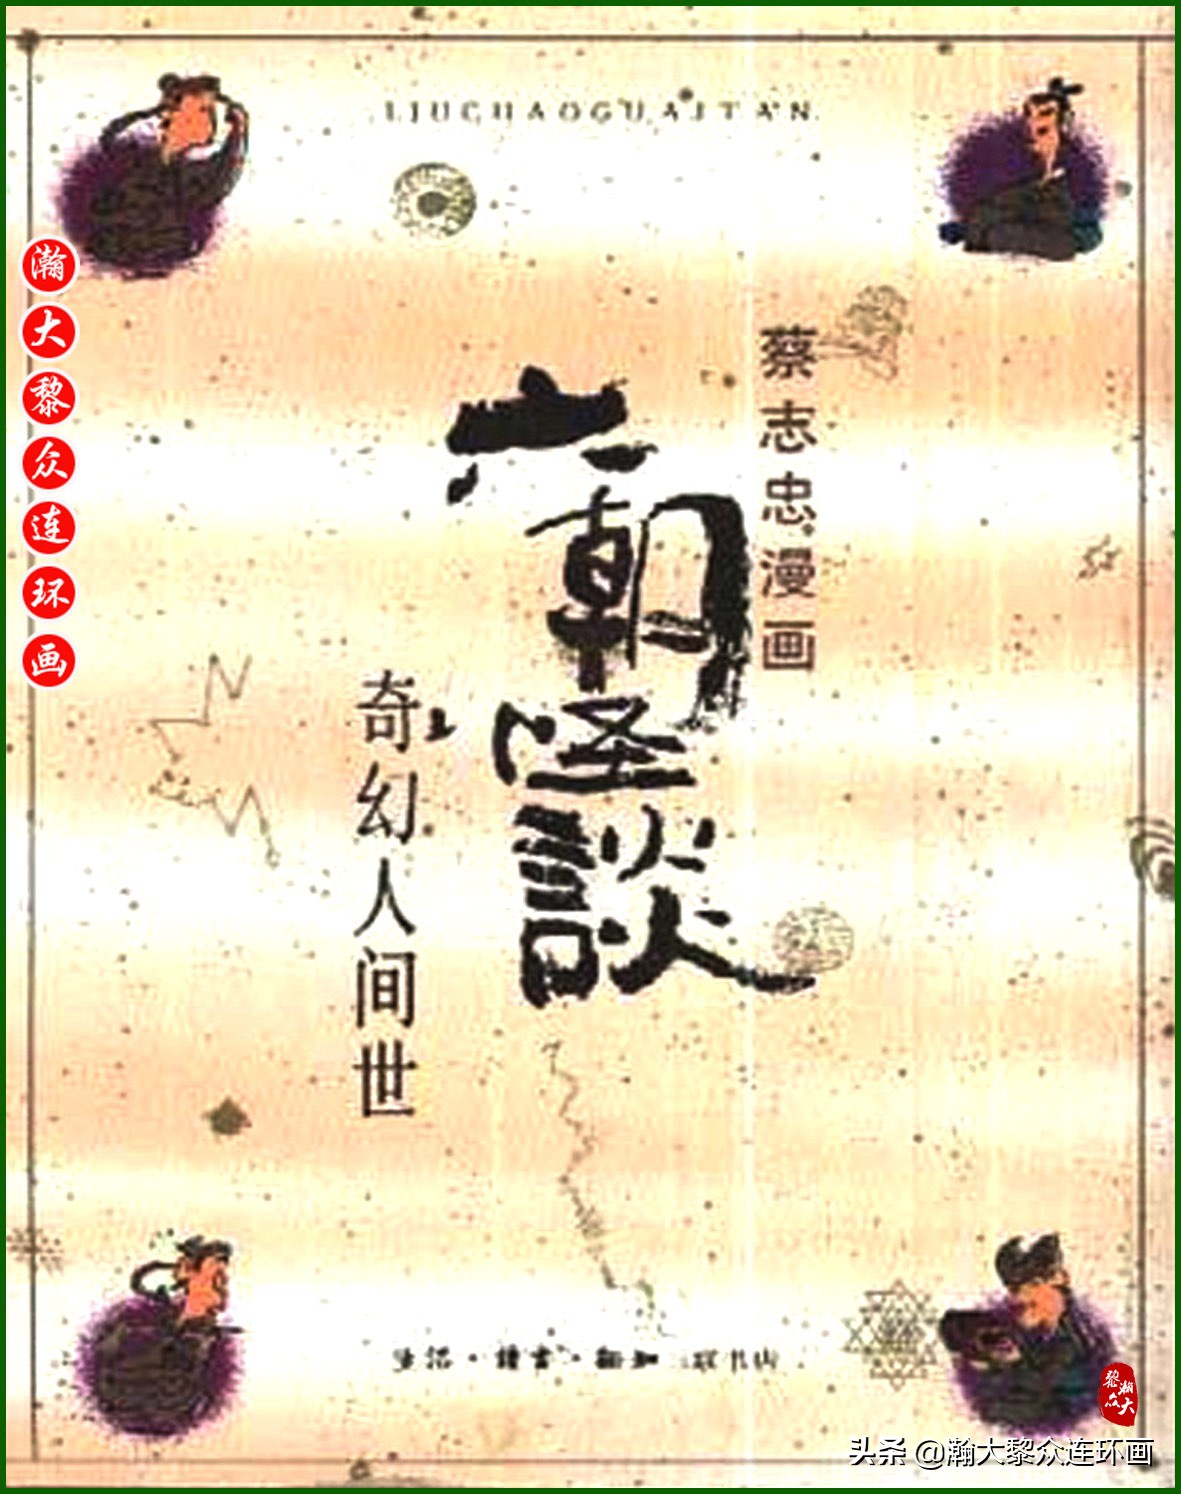 LIUCHAOGUAITAN
蔡志忠漫画
六朝怪談
奇幻人间世
生活·讀書·新知 三联书店
瀚大黎众连环画
瀚大黎众
头条 @瀚大黎众连环画